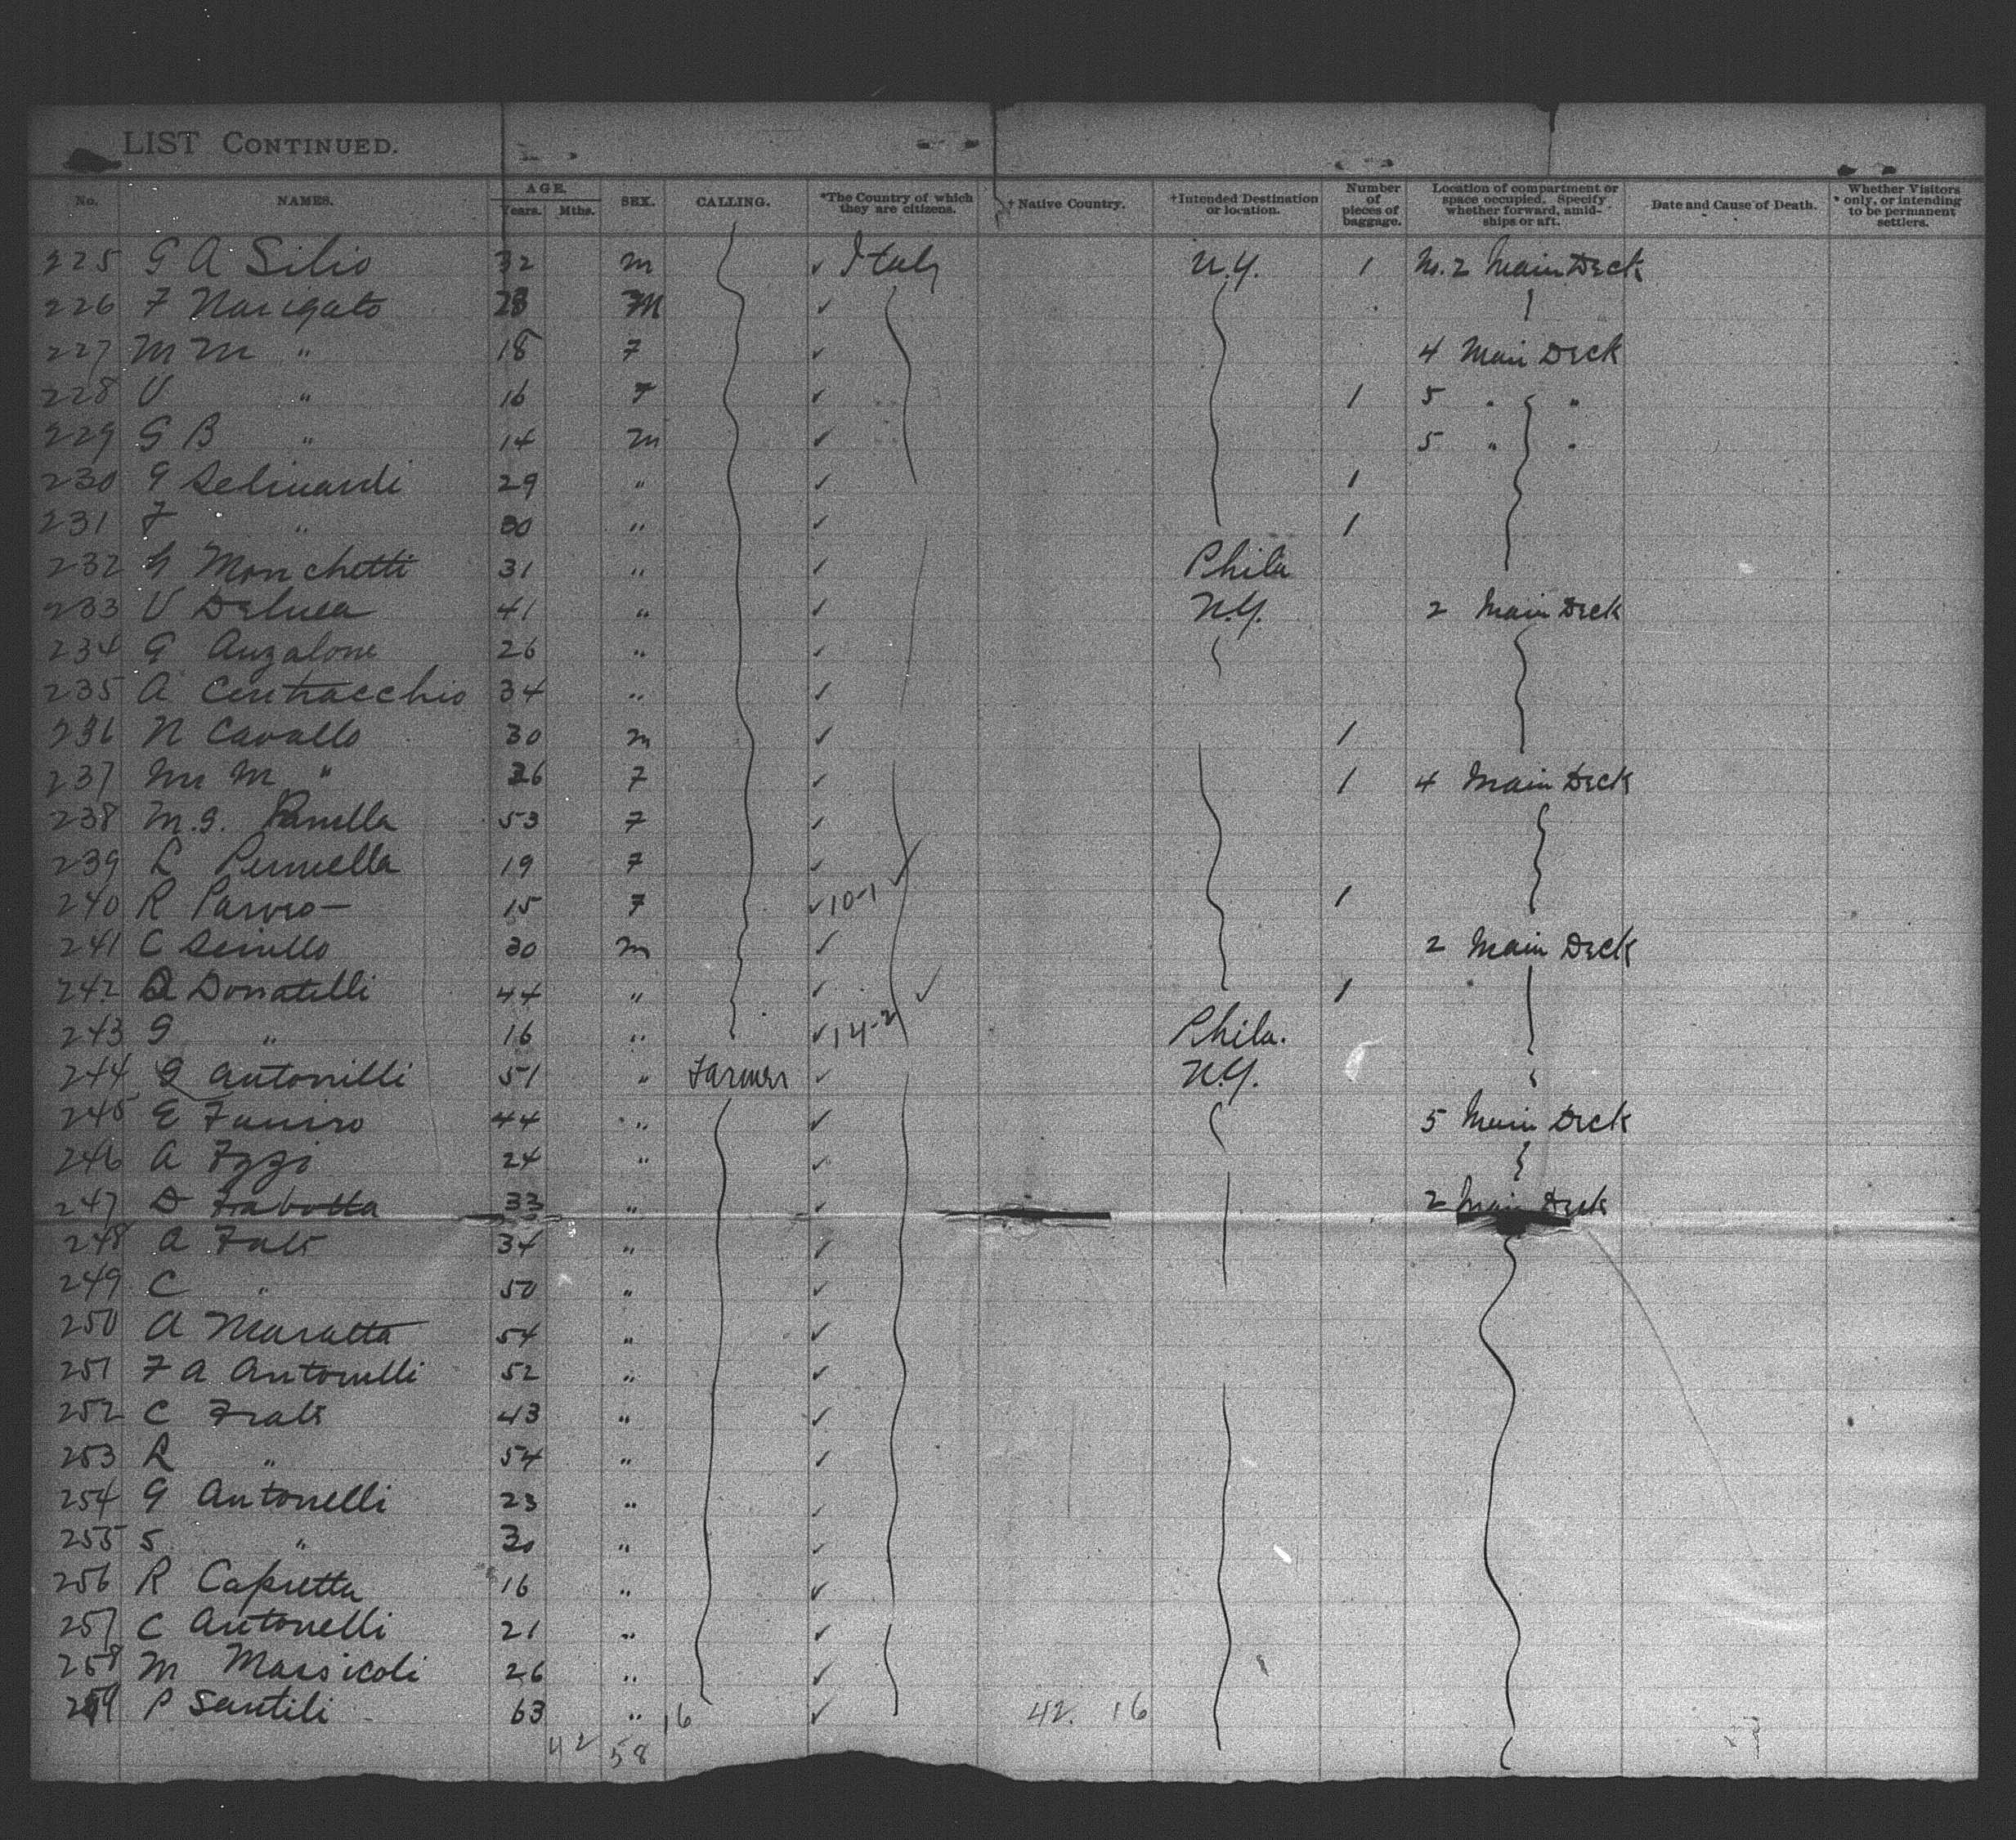 LIST CONTINUED.
No. NAMES. AGE. Years. Mths. SEX. CALLING. *The Country of which they are citizens. † Native Country. †Intended Destination or location. Number of pieces of baggage. Location of compartment or space occupied. Specify whether forward, amid-ships or aft. Date and Cause of Death. Whether Visitors only, or intending to be permanent settlers.
225 G A Silio 32 m ✓ Italy N.Y. 1 No. 2 Main Deck
226 F Narigato 28 M ✓
227 M M " 18 F ✓ 4 Main Deck
228 V " 16 F ✓ 1 5 " "
229 G B " 14 m ✓ 5 " "
230 G 29 " ✓ 1
231 F " 30 " ✓ 1
232 G Monchetti 31 " ✓ Phila
233 V Deluca 41 " ✓ N.Y. 2 Main Deck
234 G Anzalone 26 " ✓
235 A Centracchio 34 " ✓
236 N Cavallo 30 m ✓ 1
237 M " 26 F ✓ 1 4 Main Deck
238 M.G. 53 F ✓
239 L 19 F ✓
240 R 15 F ✓ 10-1 1
241 C 30 m ✓ 2 Main Deck
242 D Donatelli 44 " ✓ 1
243 G " 16 " ✓ 14-2 Phila.
244 G Antonilli 51 " Farmer ✓ N.Y.
245 E 44 " ✓ 5 Main Deck
246 A 24 " ✓
247 D Frabotta 33 " ✓ 2 Main Deck
248 A 34 " ✓
249 C " 50 " ✓
250 A Maratta 54 " ✓
251 F A Antonelli 52 " ✓
252 C 43 " ✓
253 R " 54 " ✓
254 G Antonelli 23 " ✓
255 S " 30 " ✓
256 R Capretta 16 " ✓
257 C Antonelli 21 " ✓
258 M Marsicoli 26 " ✓
259 P Santili 63 " 16 ✓ 42. 16
42 58